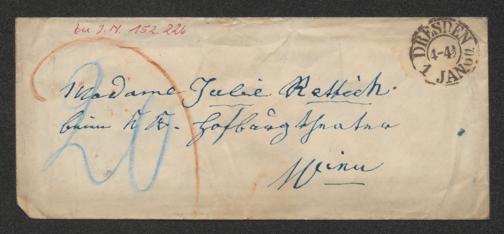 bei I.N. 152.226
DRESDEN
1 JAN
20
Madame Julie Rettich.
beim K. K. Hofburgtheater
Wien